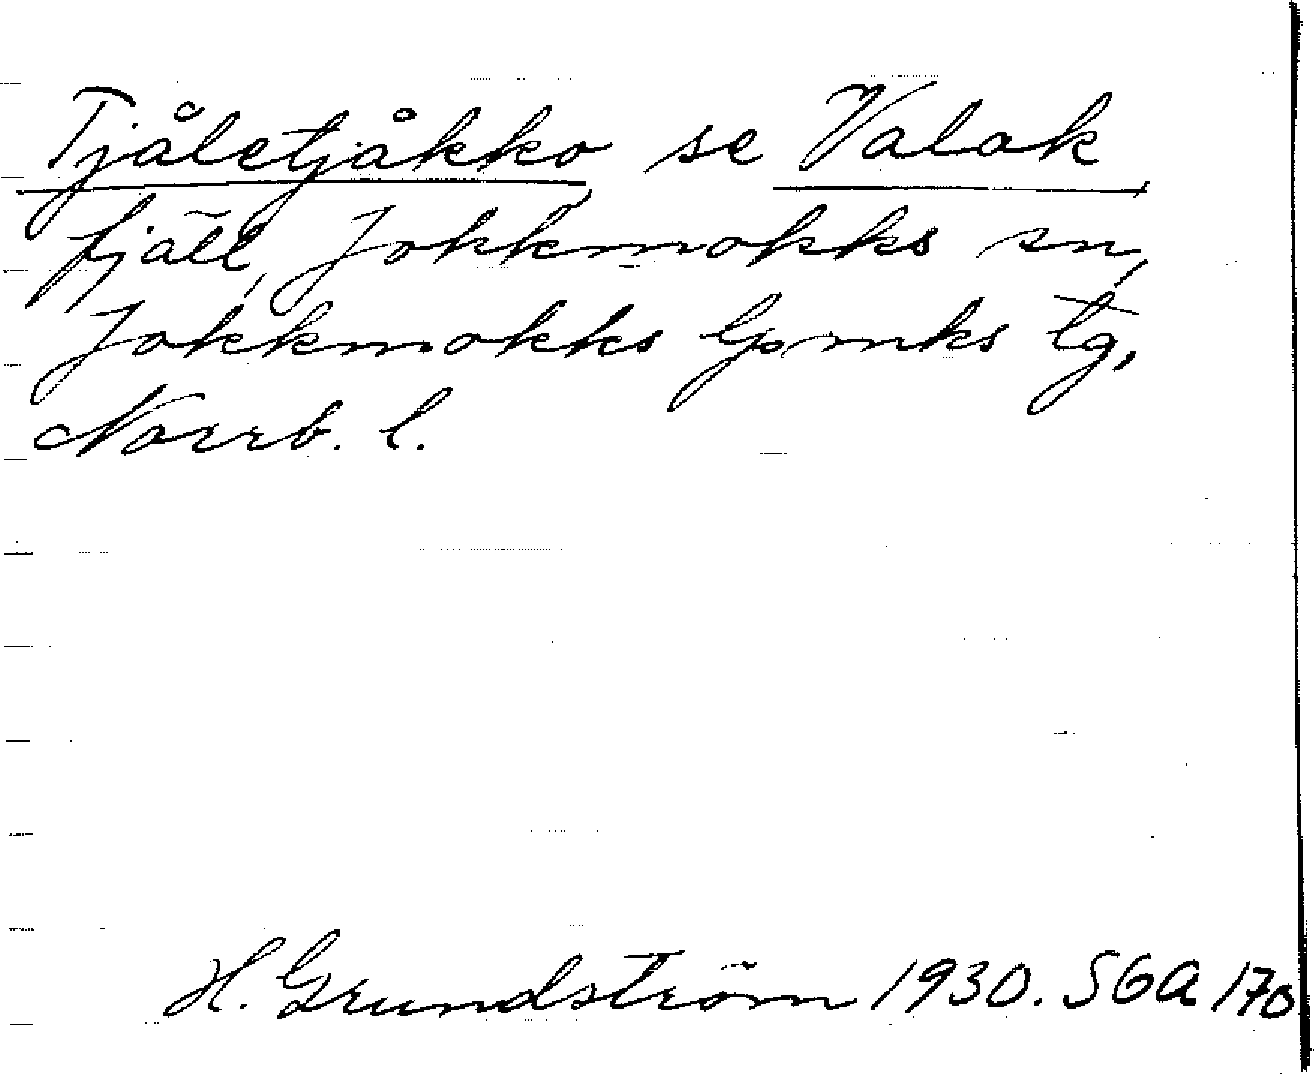 Tjåletjåkko se Valak
fjäll, Jokkmokks sn,
Jokkmokks lpmks tg,
Norrb. l.
H. Grundström 1930. SGA 170